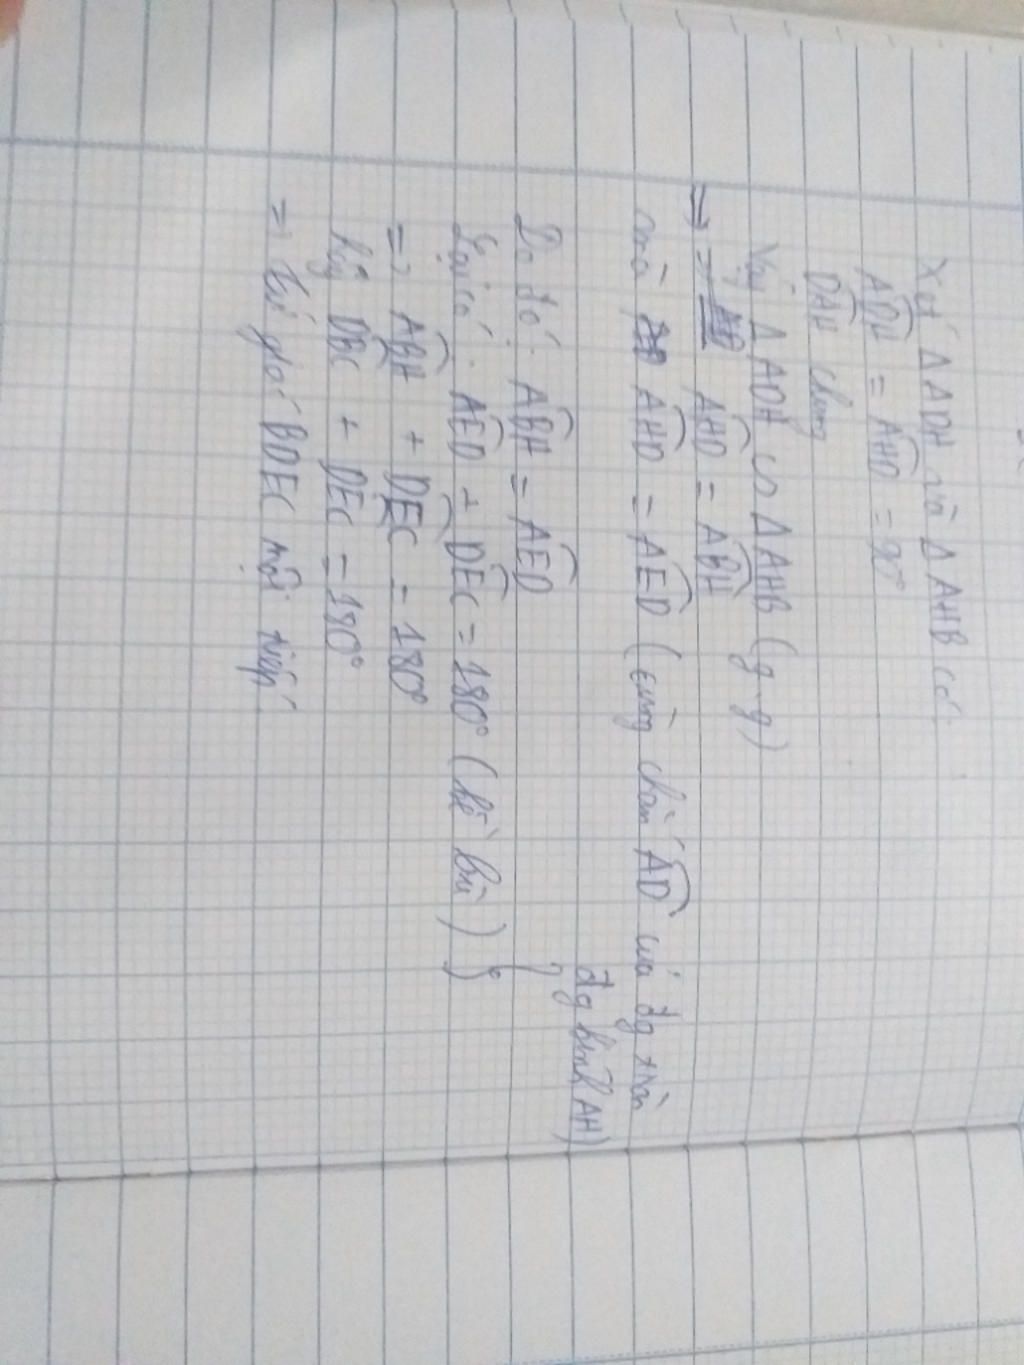 Xét Δ ADH và Δ AHB có
ADH = AHD = 90°
DAH chung
Vậy Δ ADH ∽ Δ AHB (g-g)
=> AHD = ABH
mà AHD = AED (cùng chắn AD của đg tròn
đg kính AH)
Do đó: ABH = AED
Lại có: AED + DEC = 180° (kề bù)
=> ABH + DEC = 180°
hay DBC + DEC = 180°
=> tứ giác BDEC nội tiếp